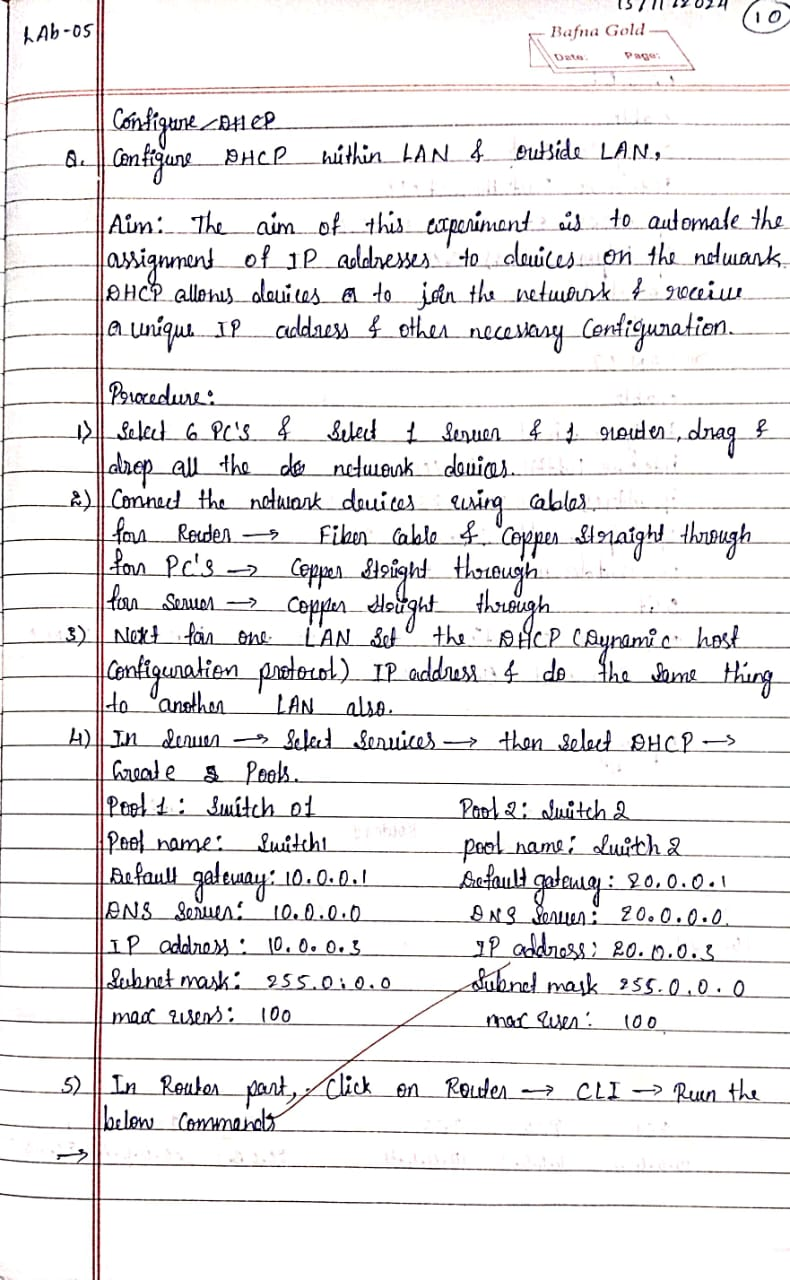 15/11/2024
10
LAb-05
Bafna Gold
Date: Page:
Configure DHCP
Q. Configure DHCP within LAN & outside LAN,
Aim: The aim of this experiment is to automate the
assignment of IP addresses to devices on the network
DHCP allows devices to join the network & receive
a unique IP address & other necessary Configuration.
Procedure:
1) Select 6 PC's & Select 1 Server & 1 router, drag &
drop all the network devices.
2) Connect the network devices using cables
for Router → Fiber Cable & Copper Straight through
for PC's → Copper Stright through
for Server → Copper Stright through
3) Next for one LAN Set the DHCP (Dynamic host
Configuration protocol) IP address & do the same thing
to another LAN also.
4) In Server → Select Services → then select DHCP →
Create 2 Pools.
Pool 1: Switch 01 Pool 2: Switch 2
Pool name: Switch1 pool name: Switch 2
Default gateway: 10.0.0.1 Default gateway: 20.0.0.1
DNS Server: 10.0.0.0 DNS Server: 20.0.0.0.
IP address: 10.0.0.3 IP address: 20.0.0.3
Subnet mask: 255.0.0.0 Subnet mask 255.0.0.0
max users: 100 max user: 100
5) In Router part, Click on Router → CLI → Run the
below Commands
→